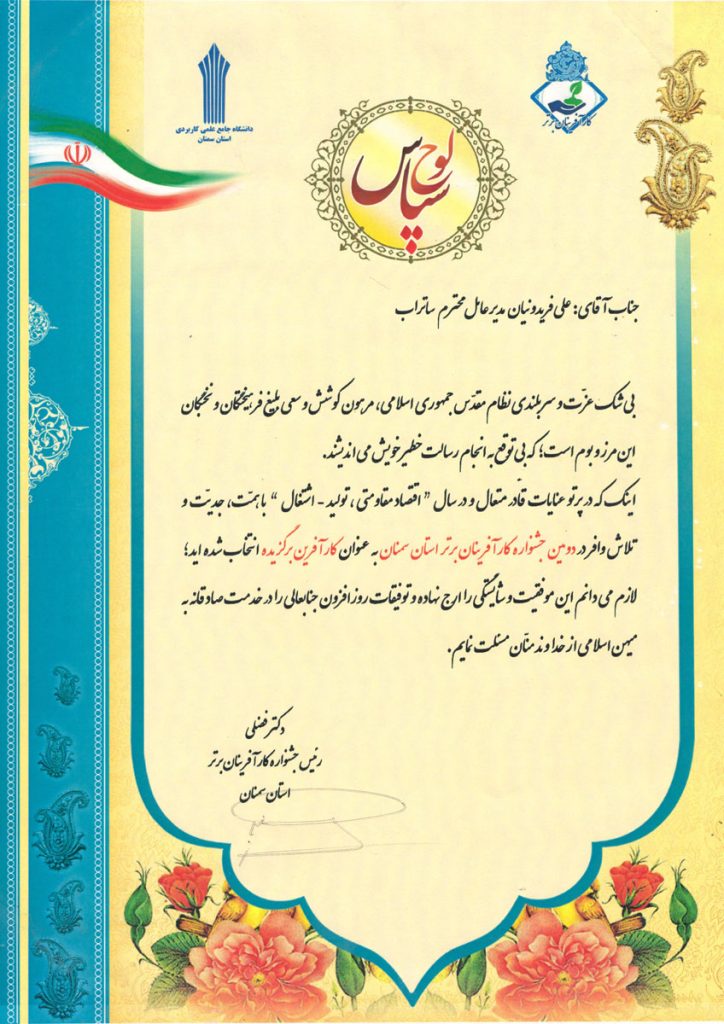 دانشگاه جامع علمی کاربردی
استان سمنان
کارآفرینان برتر
لوح سپاس
جناب آقای: علی فریدونیان مدیرعامل محترم ساتراب
بی شک عزّت و سربلندی نظام مقدّس جمهوری اسلامی، مرهون کوشش و سعی بلیغ فرهیختگان و نخبگان
این مرز و بوم است؛ که بی توقع به انجام رسالت خطیر خویش می اندیشند.
اینک که در پرتو عنایات قادر متعال و در سال " اقتصاد مقاومتی ، تولید - اشتغال " با همّت، جدیّت و
تلاش وافر در دومین جشنواره کارآفرینان برتر استان سمنان به عنوان کارآفرین برگزیده انتخاب شده اید؛
لازم می دانم این موفقیت و شایستگی را ارج نهاده و توفیقات روزافزون جنابعالی را در خدمت صادقانه به
میهن اسلامی از خداوند منّان مسئلت نمایم.
دکتر فضلی
رئیس جشنواره کارآفرینان برتر
استان سمنان